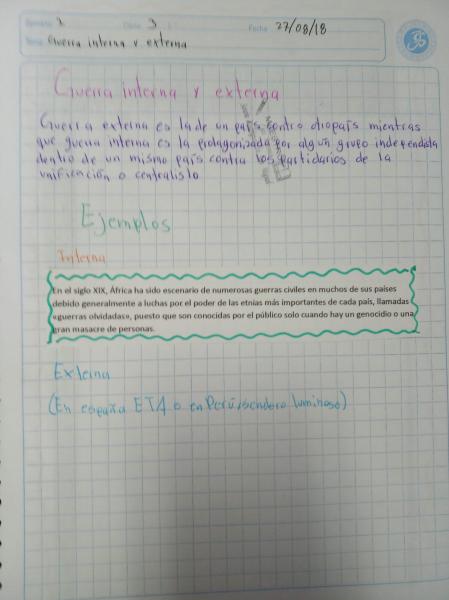 2 3 Fecha 27/08/18
Tema Guerra interna y externa
Guerra interna y externa
Guerra externa es la de un país contro otro país mientras
que guerra interna es la protagonizada por algún grupo independista
dentro de un mismo país contra los partidarios de la
unificación o centralisto
Ejemplos
Interna
En el siglo XIX, África ha sido escenario de numerosas guerras civiles en muchos de sus países
debido generalmente a luchas por el poder de las etnias más importantes de cada país, llamadas
«guerras olvidadas», puesto que son conocidas por el público solo cuando hay un genocidio o una
gran masacre de personas.
Externa
(En españa ETA o en Perú sendero luminoso)